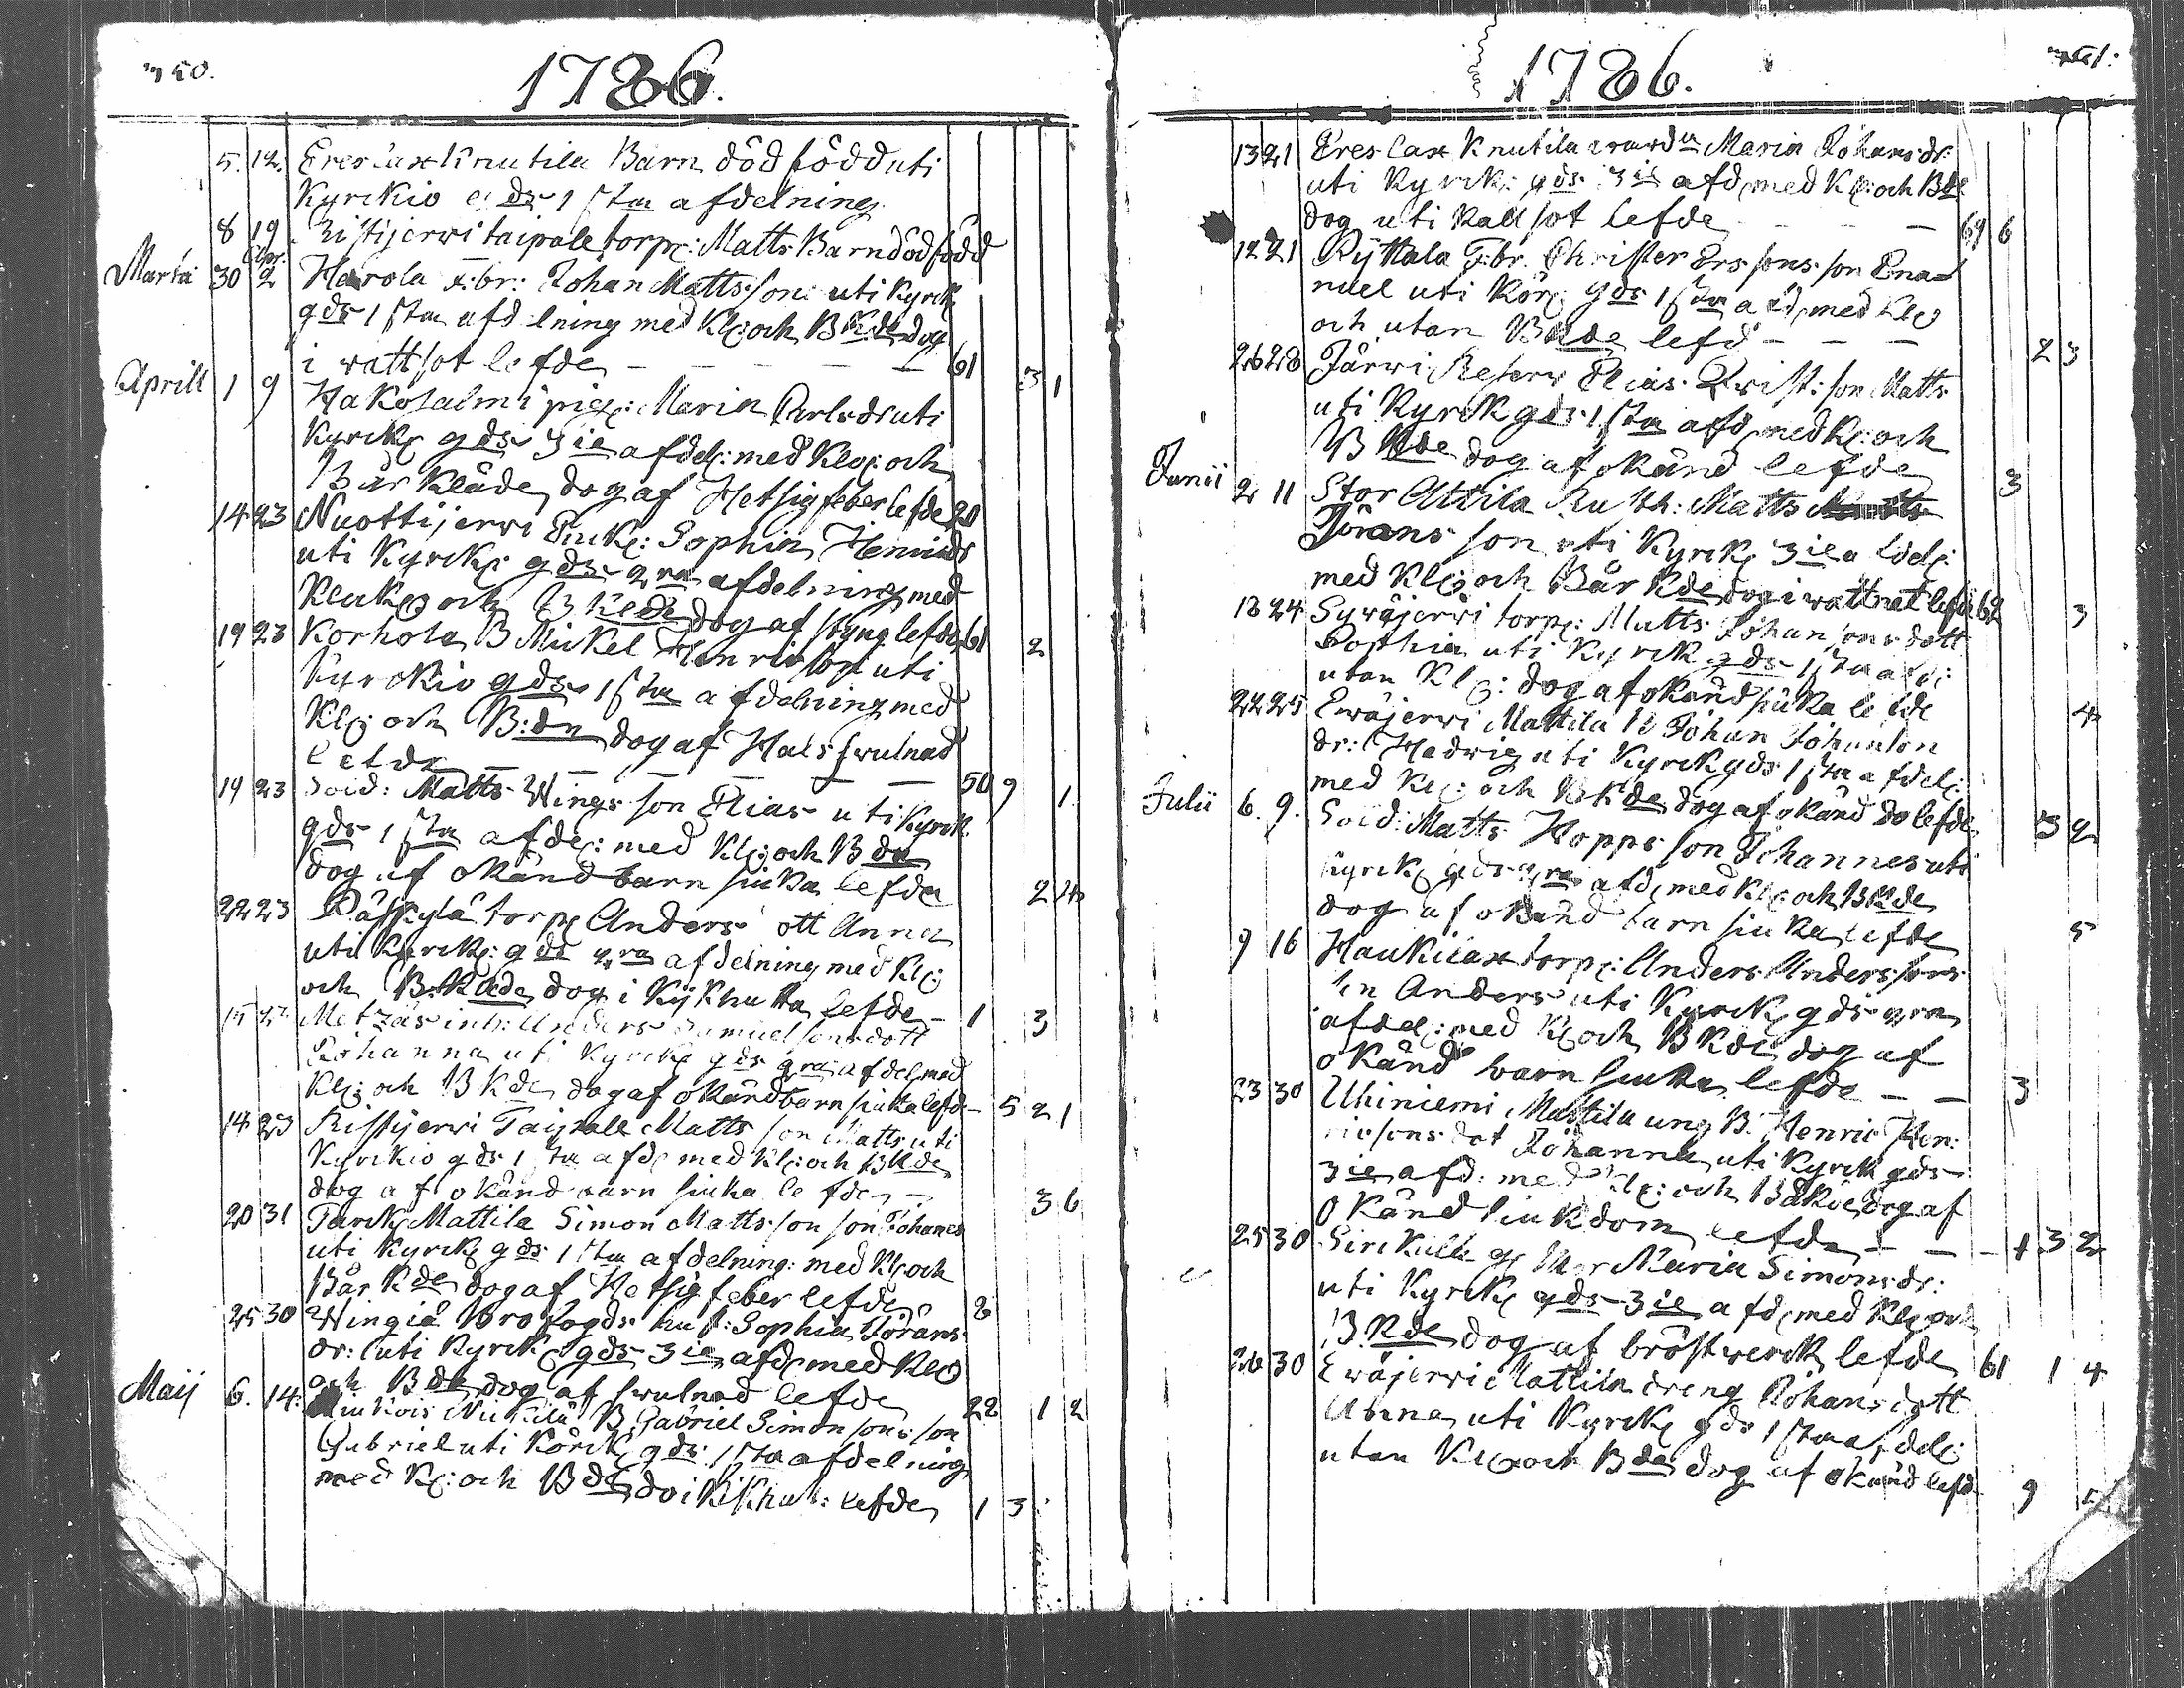 1786.
5. 12. Eres lax Knutila Barn död född uti
Kyrkio gds 1 sta afdelning
8 19 Ristijerwi taipale torp: Matts Barn död född
Martii 30 Apr. 2 Harola F:br: Johan Mattsson uti Kyrk
gds 1 sta afdelning med Kl: och B Kde dog
i wattsot lefde — — — — 61 3 1
Aprill 1 9 Hakosalmi pig: Maria Carlsdr uti
Kyrk: gds 3 ie afdel: med Klo: och
Bår Kläde dog af Hetsig feber lefde 20
14 23 Nuottijerwi Enk: Sophia Henricsdr
uti Kyrk: gds 2 ra afdelning med
Klocko och B Klde dog af styng lefde 61 2
19 23 Korhola B Mickel Henricsson uti
Kyrckio gds 1 sta afdelning med
Kl: och B:de dog af Hals swulnad
lefde — — — — — 50 9 1
19 23 Sold: Matts Wings son Elias uti Kyrck
gds 1 sta afde: med Kl: och B de
dog af okänd barn siuka lefde 2 4
22 23 torp Anders dott Anna
uti Kyrk: gds 2 ra afdelning med Kl:
och B:Klde dog i Kijkhosta lefde — 1 3
15 23 inh: Anders Samuelssons dott
Johanna uti Kyrck gds 2 ra afdel med
Kl: och B Kde dog af okänd barn siuka lefde — 5 2 1
14 23 Ristijerwi Taipale Matts son Matts uti
Kyrckio gds 1 sta afd med Kl: och B Kde
dog af okänd barn siuka lefde — 3 6
20 31 Turck Mattila Simon Mattsson son Johannes
uti Kyrck gds 1 sta afdelning: med Kl: och
Bår Kde dog af Hetsig feber lefde 8
25 30 Wingiä Brofogds hust: Sophia Jörans
dr: uti Kyrck gds 3 ie afd med Klo
och B de dog af swulnad lefde 22 1 2
Maij 6. 14. Nickilä B Gabriel Simonsons son
Gabriel uti Körck gds 1 sta afdelning
med K: och B de do i Kikhus: lefde 1 3
1786.
13 21 Eres lax Knutila Maria Johansdr:
uti Kyrck: gds 3 ie afd med Kl: och Bde
dog uti Kall sot lefde — — — 69 6
12 21 Ryttala F:br. Christer Ers sons son Ema
nuel uti Kör: gds 1 sta afd med Klo
och utan B Kde lefd — — — 2 3
26 28 Järwi Reserv Elias Qwist: son Matts
uti Kyrck gds 1 sta afd med Kl: och
B Kde dog af okänd lefde 3
Junii 2 11 Stor Attila Rusth: Matts
Jörans son uti Kyrck 3 ie afdel:
med Kl: och Bår Kde dog i wattnet lefde 62 3
18 24 Sywäjerwi torp: Matts Johansons dott
Sophia uti Kyrck gds 1 sta afd:
utan Kl: dog af okänd siuka lefde 4
22 25 Ewäjerwi Mattila B Johan Johanson
dr: Hedwig uti Kyrck gds 1 sta afdel:
med Kl: och B Kde dog af okänd do lefde 3 2
Julii 6. 9. Sold: Matts Hopps son Johannes uti
Kyrck gds 2 ra afd med Kl: och B Kde
dog af okänd barn siuka lefde 5
9 16 Haukilax torp: Anders Anderssons
son Anders uti Kyrck gds 2 ra
afdel: med Kl: och B Kde dog af
okänd barn siuka lefde — — 3
23 30 Uhiniemi Mattila ung B. Henric Hen:
ricsons dot Johanna uti Kyrck gds
3 ie afd: med Kl: och Båkde dog af
okänd siukdom lefde — — — 1 3 2
25 30 Maria Simonsdr:
uti Kyrck gds 3 ie afd med Kl: och
B Kde dog af bröstwerck lefde 61 1 4
26 30 Ewäjerwi Mattila dreng Johans dott
Anna uti Kyrck gds 1 sta afdel:
utan Klo och B de dog af okänd lefd 9 5